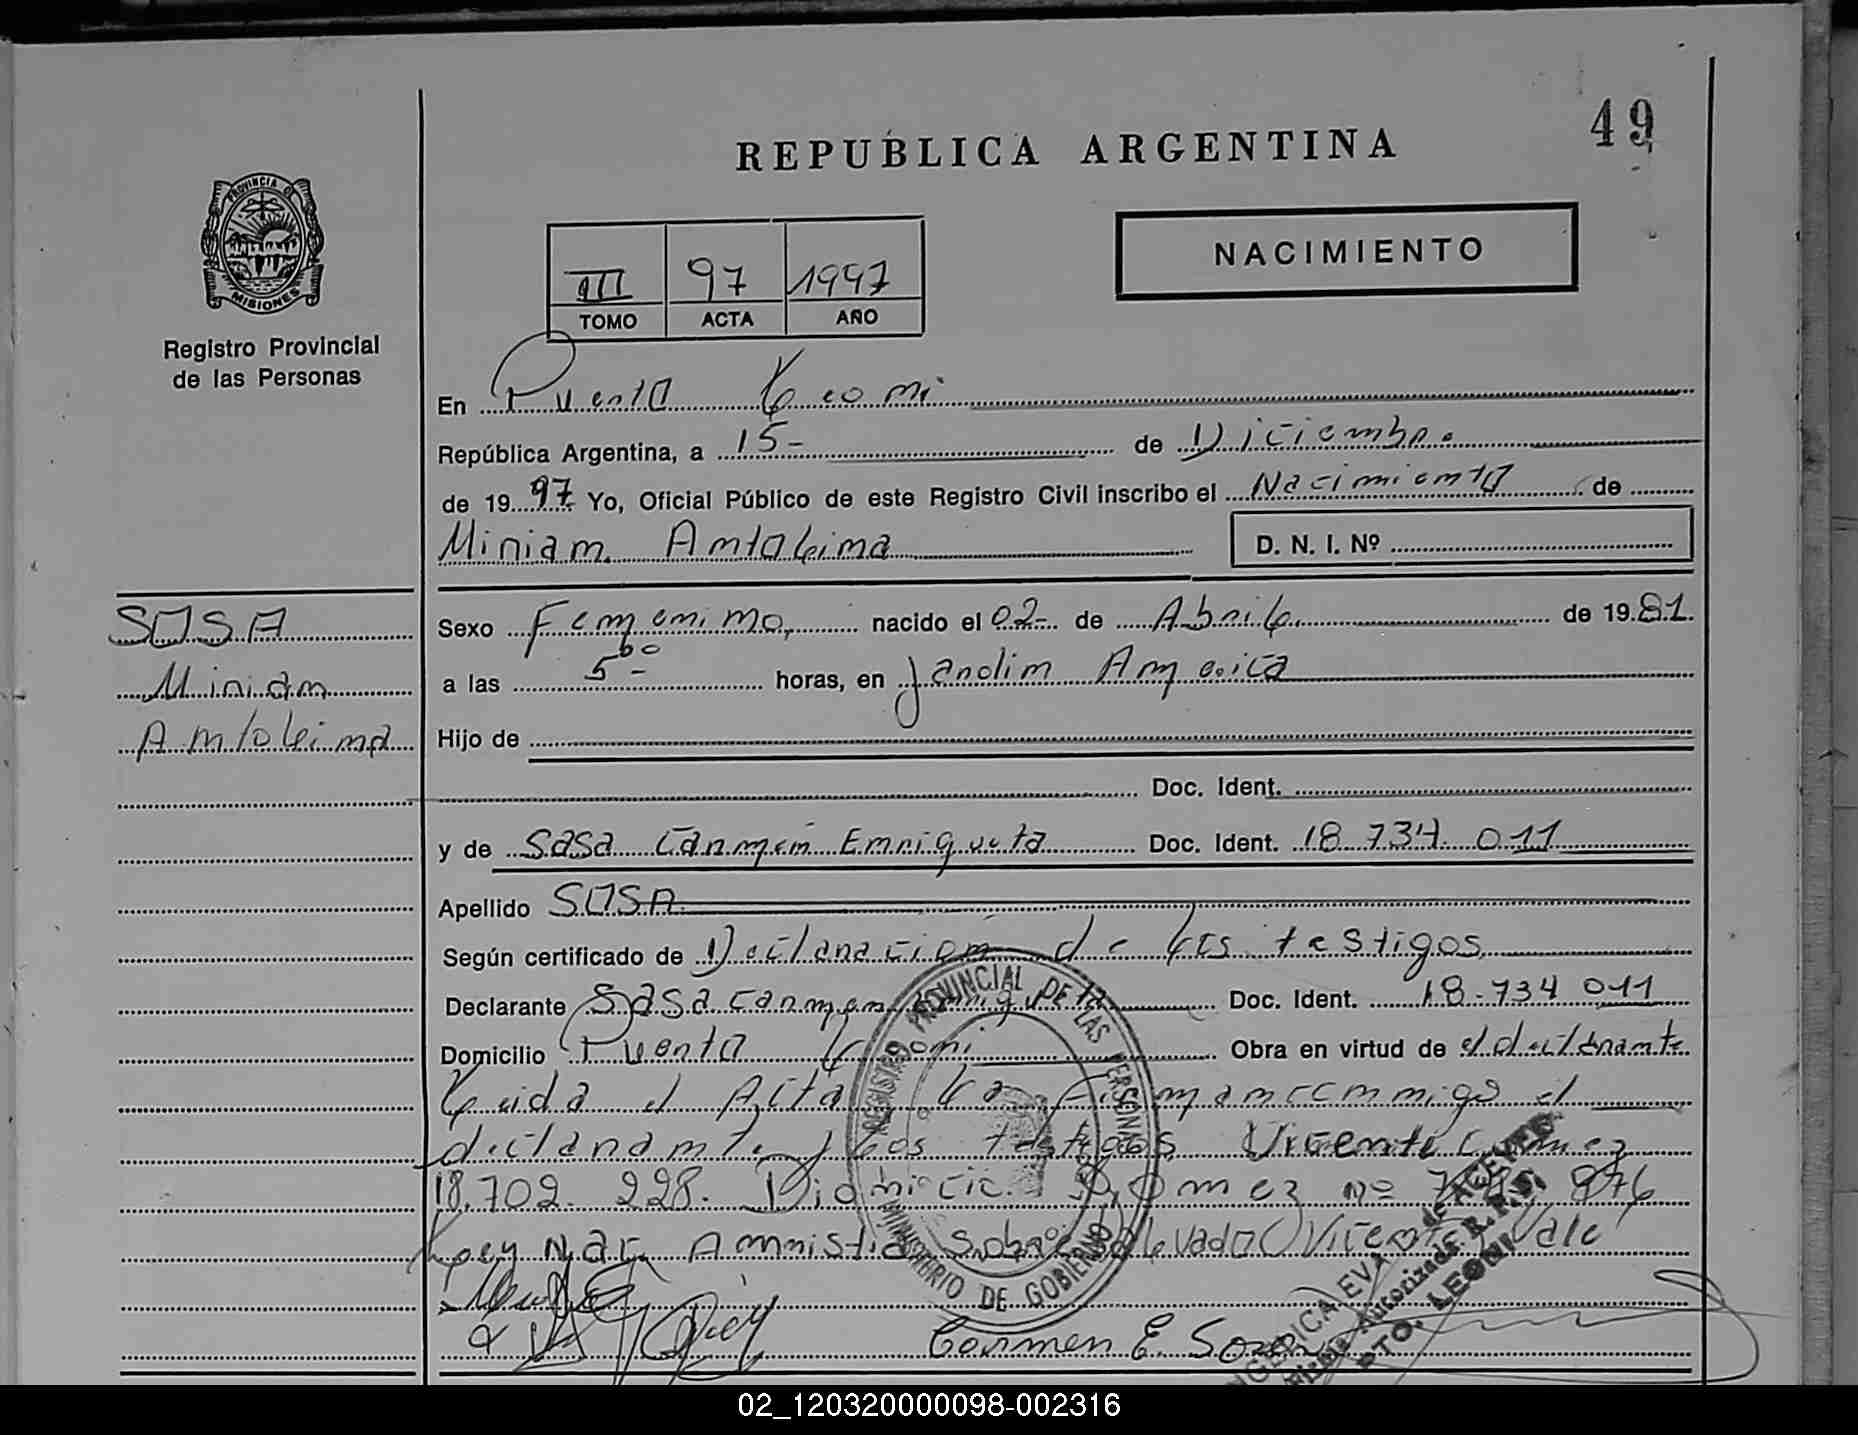 49
REPUBLICA ARGENTINA
PROVINCIA DE
MISIONES
Registro Provincial
de las Personas
III 97 1997
TOMO ACTA AÑO
NACIMIENTO
En Puerto Leoni
República Argentina, a 15- de Diciembre
de 1997 Yo, Oficial Público de este Registro Civil inscribo el Nacimiento de
Miriam Antolina D. N. I. Nº
SOSA
Miriam
Antolina
Sexo Femenino, nacido el 02- de Abril de 1981.
a las 5 00 horas, en Jardin America
Hijo de
Doc. Ident.
y de Sosa Carmen Enriqueta Doc. Ident. 18 734 011
Apellido SOSA
Según certificado de Declaracion de los testigos
Declarante Sosa Carmen Enriqueta Doc. Ident. 18.734 011
Domicilio Puerto Leoni Obra en virtud de el declarante
Leida el Acta la Firman conmigo el
declarante y los testigos Vicente Gomez
18.702.228. Gomez Nº 876
Ley Nac. Amnistia Sobre Vicente Vale
Carmen E. Sosa
REGISTRO PROVINCIAL DE LAS PERSONAS
MINISTERIO DE GOBIERNO
ANGELICA EVA de ACEVEDO
Autorizada R. P. P.
PTO. LEONI
02_120320000098-002316